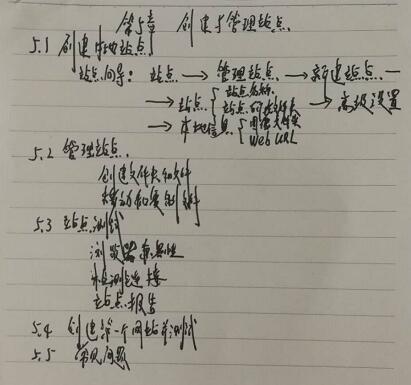 第5章 创建与管理站点
5.1 创建本地站点
站点向导: 站点 → 管理站点 → 新建站点 —
→ 站点 { 站点名称 站点的文件夹 → 高级设置
→ 本地信息 { 图像文件夹 Web URL
5.2 管理站点.
创建文件夹和文件
移动和复制文件
5.3 站点测试
浏览器兼容性
检测链接
站点报告
5.4 创建第一个网站并测试
5.5 常见问题